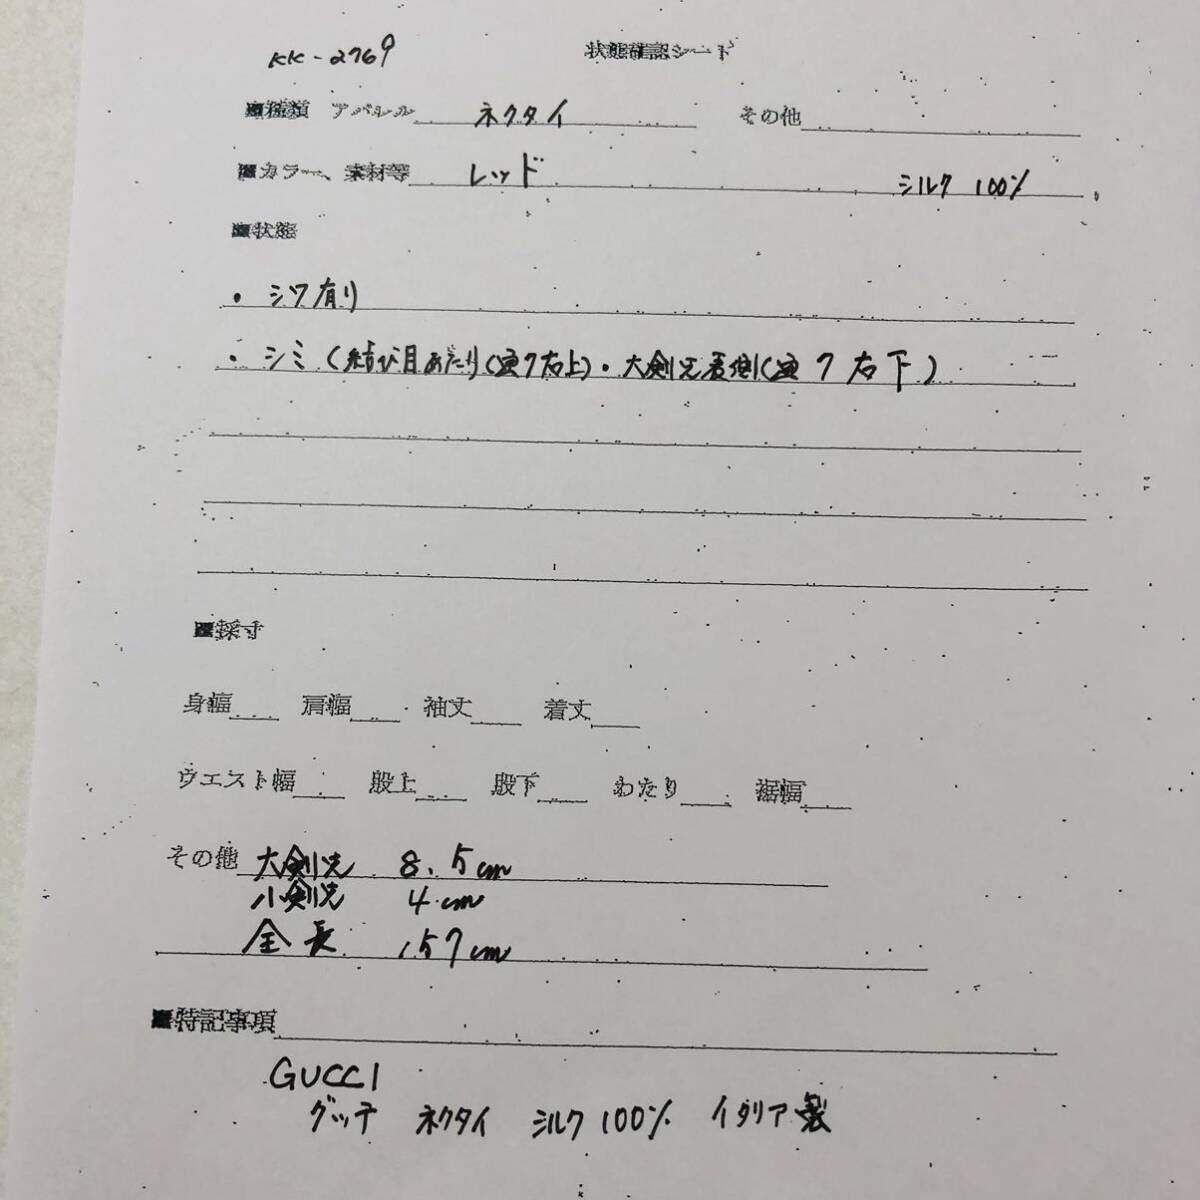 KK-2769
状態確認シート
■種類 アパレル ネクタイ その他
■カラー、素材等 レッド シルク 100%
■状態
・シワ有り
・シミ(結び目あたり(画7右上)・大剣先裏側(画7右下)
■採寸
身幅 肩幅 袖丈 着丈
ウエスト幅 股上 股下 わたり 裾幅
その他 大剣先 8.5cm
小剣先 4cm
全長 157cm
■特記事項
GUCCI
グッチ ネクタイ シルク100% イタリア製